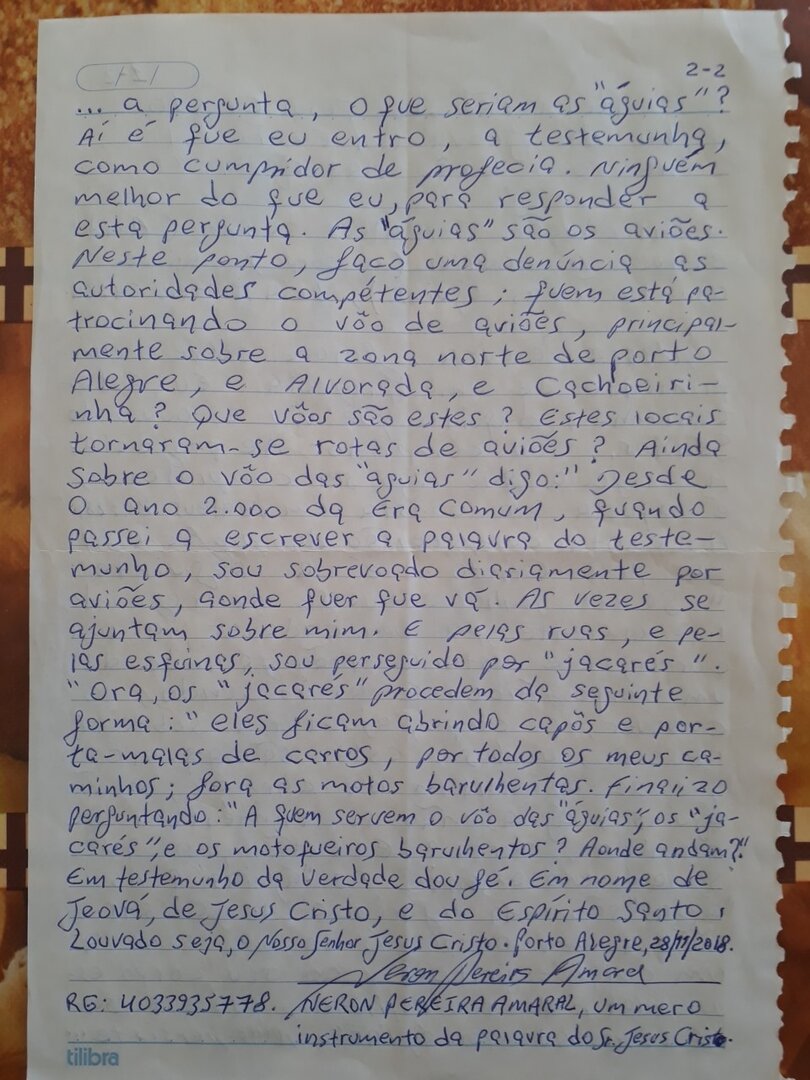 2-2
... a pergunta, o que seriam as "águias"?
Aí é que eu entro, a testemunha,
como cumpridor de profecia. Ninguém
melhor do que eu, para responder a
esta pergunta. As "águias" são os aviões.
Neste ponto, faço uma denúncia as
autoridades compétentes; quem está pa-
trocinando o vôo de aviões, principal-
mente sobre a zona norte de porto
Alegre, e Alvorada, e Cachoeiri-
nha? Que vôos são estes? Estes locais
tornaram-se rotas de aviões? Ainda
sobre o vôo das "águias" digo:" Desde
o ano 2.000 da Era Comum, quando
passei a escrever a palavra do teste-
munho, sou sobrevoado diariamente por
aviões, aonde quer que vá. As vezes se
ajuntam sobre mim. E pelas ruas, e pe-
las esquinas, sou perseguido por "jacarés".
"Ora, os "jacarés" procedem da seguinte
forma:" eles ficam abrindo capôs e por-
ta-malas de carros, por todos os meus ca-
minhos; fora as motos barulhentas. Finalizo
perguntando:"A quem servem o vôo das "águias", os "ja-
carés", e os motoqueiros barulhentos? Aonde andam?"
Em testemunho da verdade dou fé. Em nome de
Jeová, de Jesus Cristo, e do Espírito Santo.
Louvado seja, o Nosso Senhor Jesus Cristo. Porto Alegre, 28/11/2018.
Neron Pereira Amaral
RG: 4033935778. NERON PEREIRA AMARAL, um mero
instrumento da palavra do Sr. Jesus Cristo.
tilibra